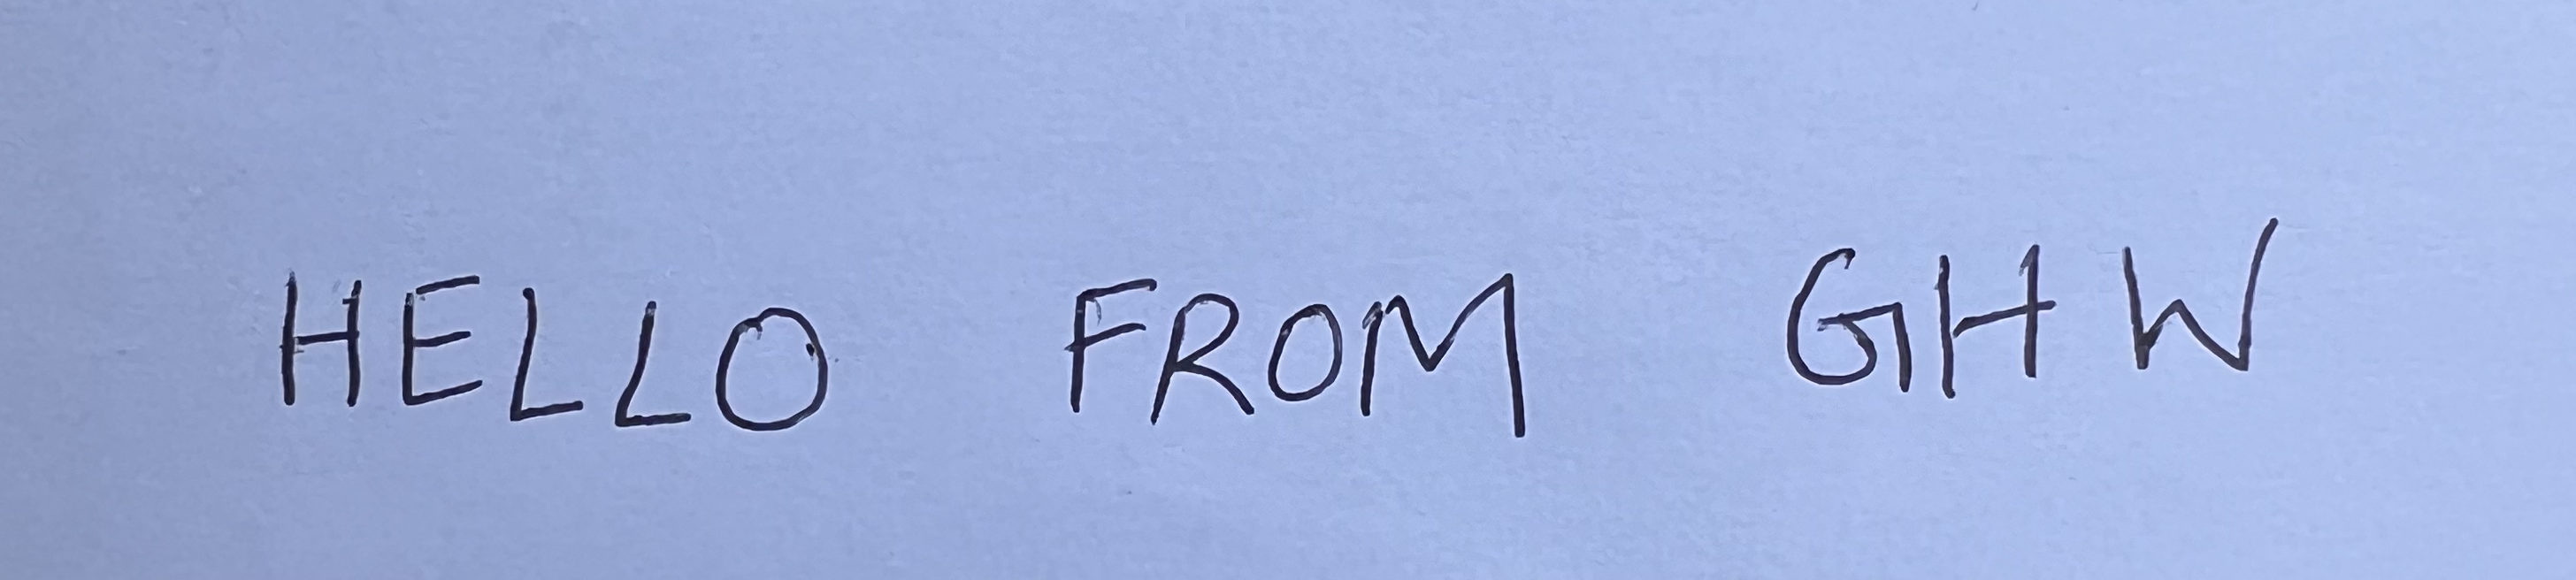 HELLO FROM GHW